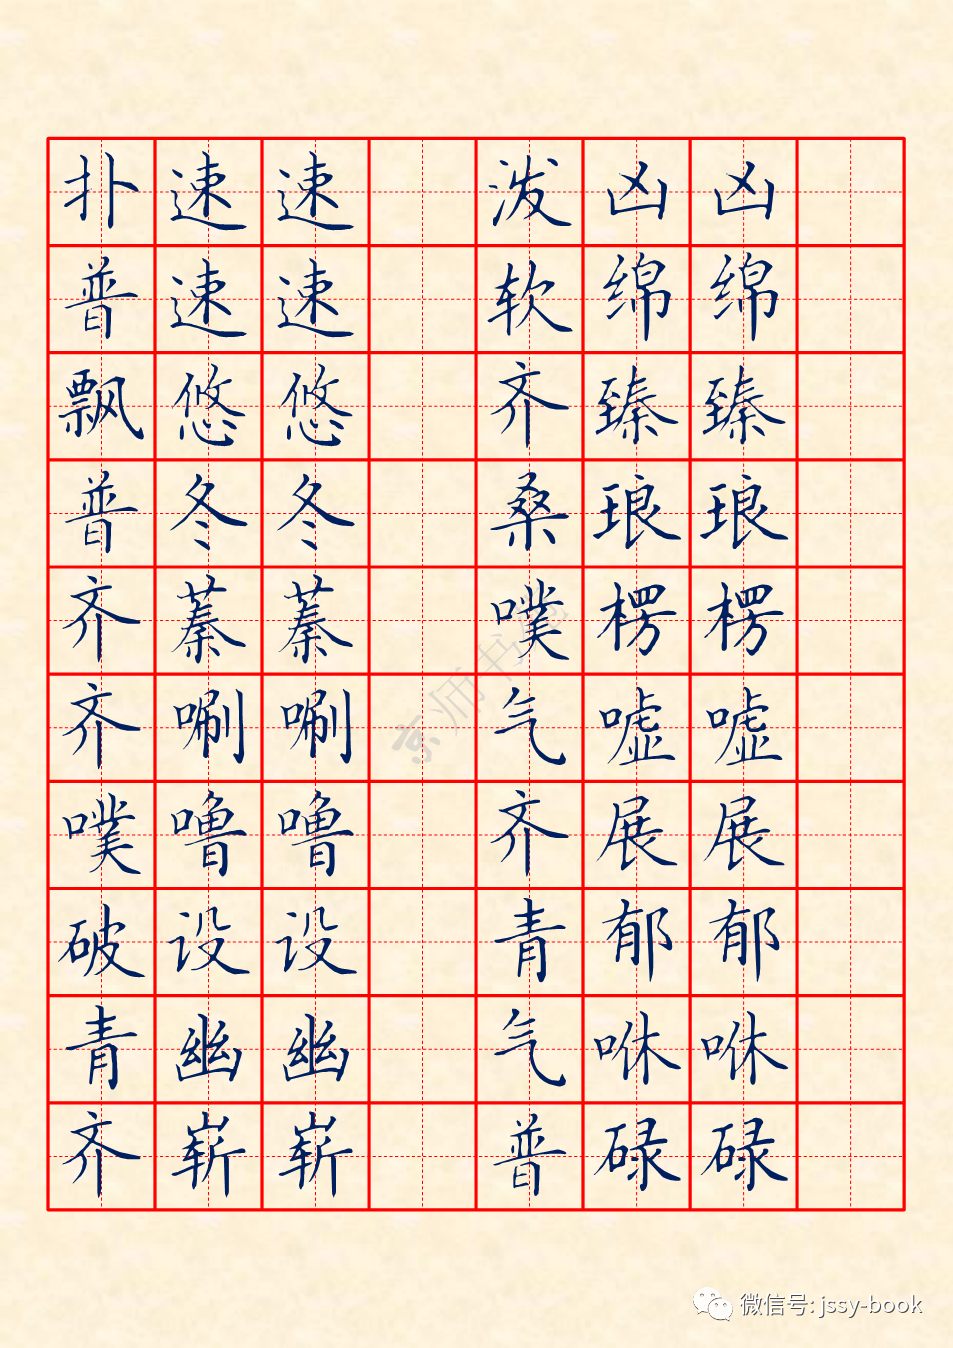 扑速速泼凶凶
普速速软绵绵
飘悠悠齐臻臻
普冬冬桑琅琅
齐蓁蓁噗楞楞
齐唰唰气嘘嘘
噗噜噜齐展展
破设设青郁郁
青幽幽气咻咻
齐崭崭普碌碌
京师书苑
微信号: jssy-book